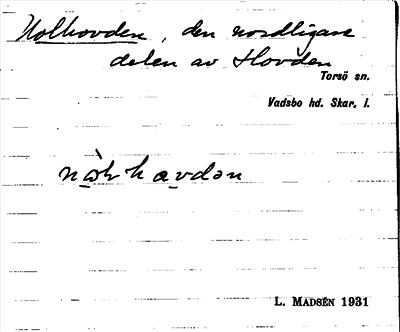 Nolhovden, den nordligare
delen av Hovden
Torsö sn.
Vadsbo hd. Skar. l.
L. MADSÉN 1931